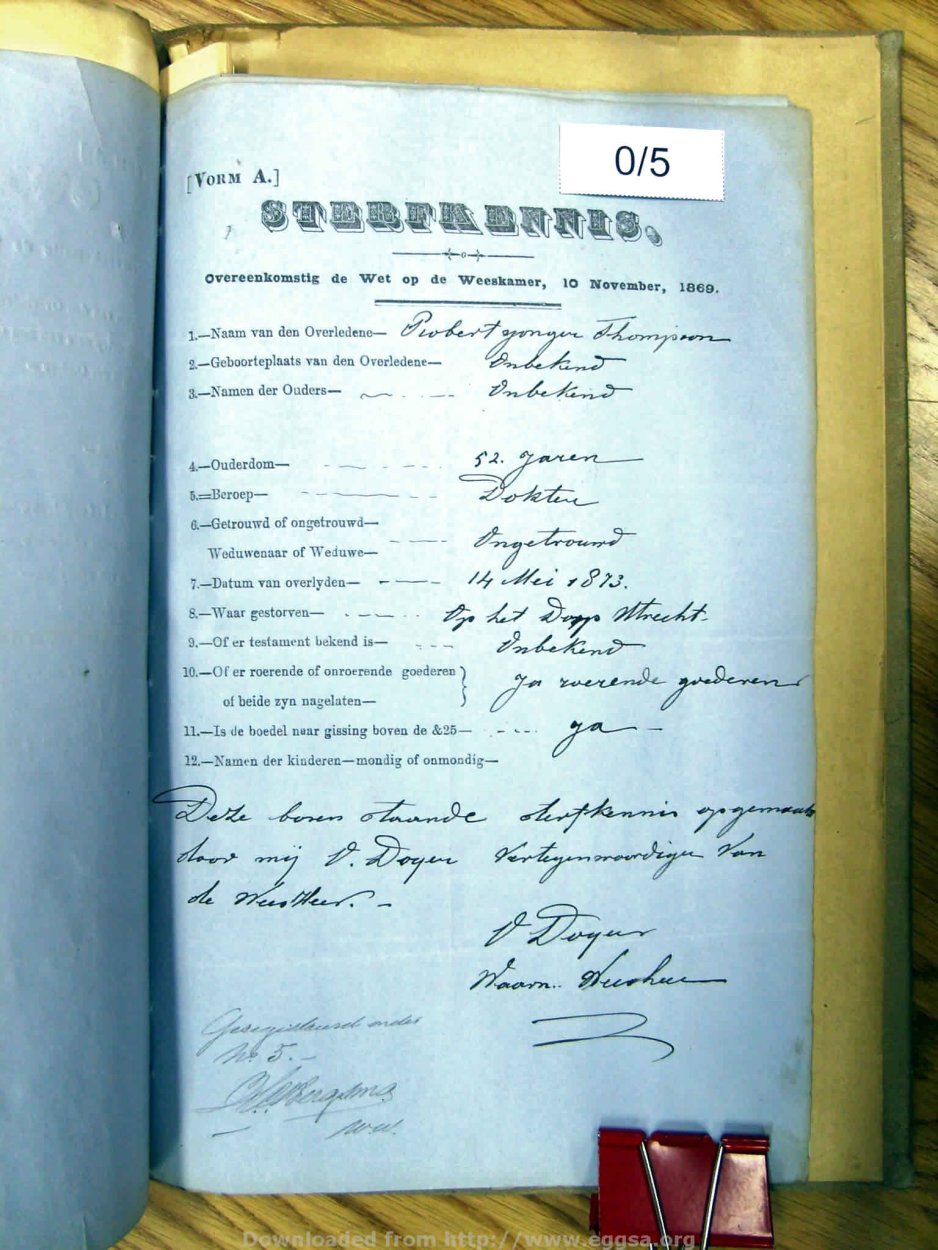 0/5
[VORM A.]
STERFKENNIS.
Overeenkomstig de Wet op de Weeskamer, 10 November, 1869.
1.—Naam van den Overledene— Robert yonger Thompson
2.—Geboorteplaats van den Overledene— Onbekend
3.—Namen der Ouders— Onbekend
4.—Ouderdom— 52. Jaren
5.—Beroep— Dokter
6.—Getrouwd of ongetrouwd—
Weduwenaar of Weduwe— Ongetrouwd
7.—Datum van overlyden— 14 Mei 1873.
8.—Waar gestorven— Op het Dorp Utrecht.
9.—Of er testament bekend is— Onbekend
10.—Of er roerende of onroerende goederen
of beide zyn nagelaten— Ja roerende goederen
11.—Is de boedel naar gissing boven de &25— ja
12.—Namen der kinderen—mondig of onmondig—
Deze boven staande sterfkennis opgemaakt
door mij Doyer Vertegenwoordiger Van
de WeesHeer.
Doyer
Waarn. Weesheer
Geregistreerd onder
No 5.
Downloaded from http://www.eggsa.org